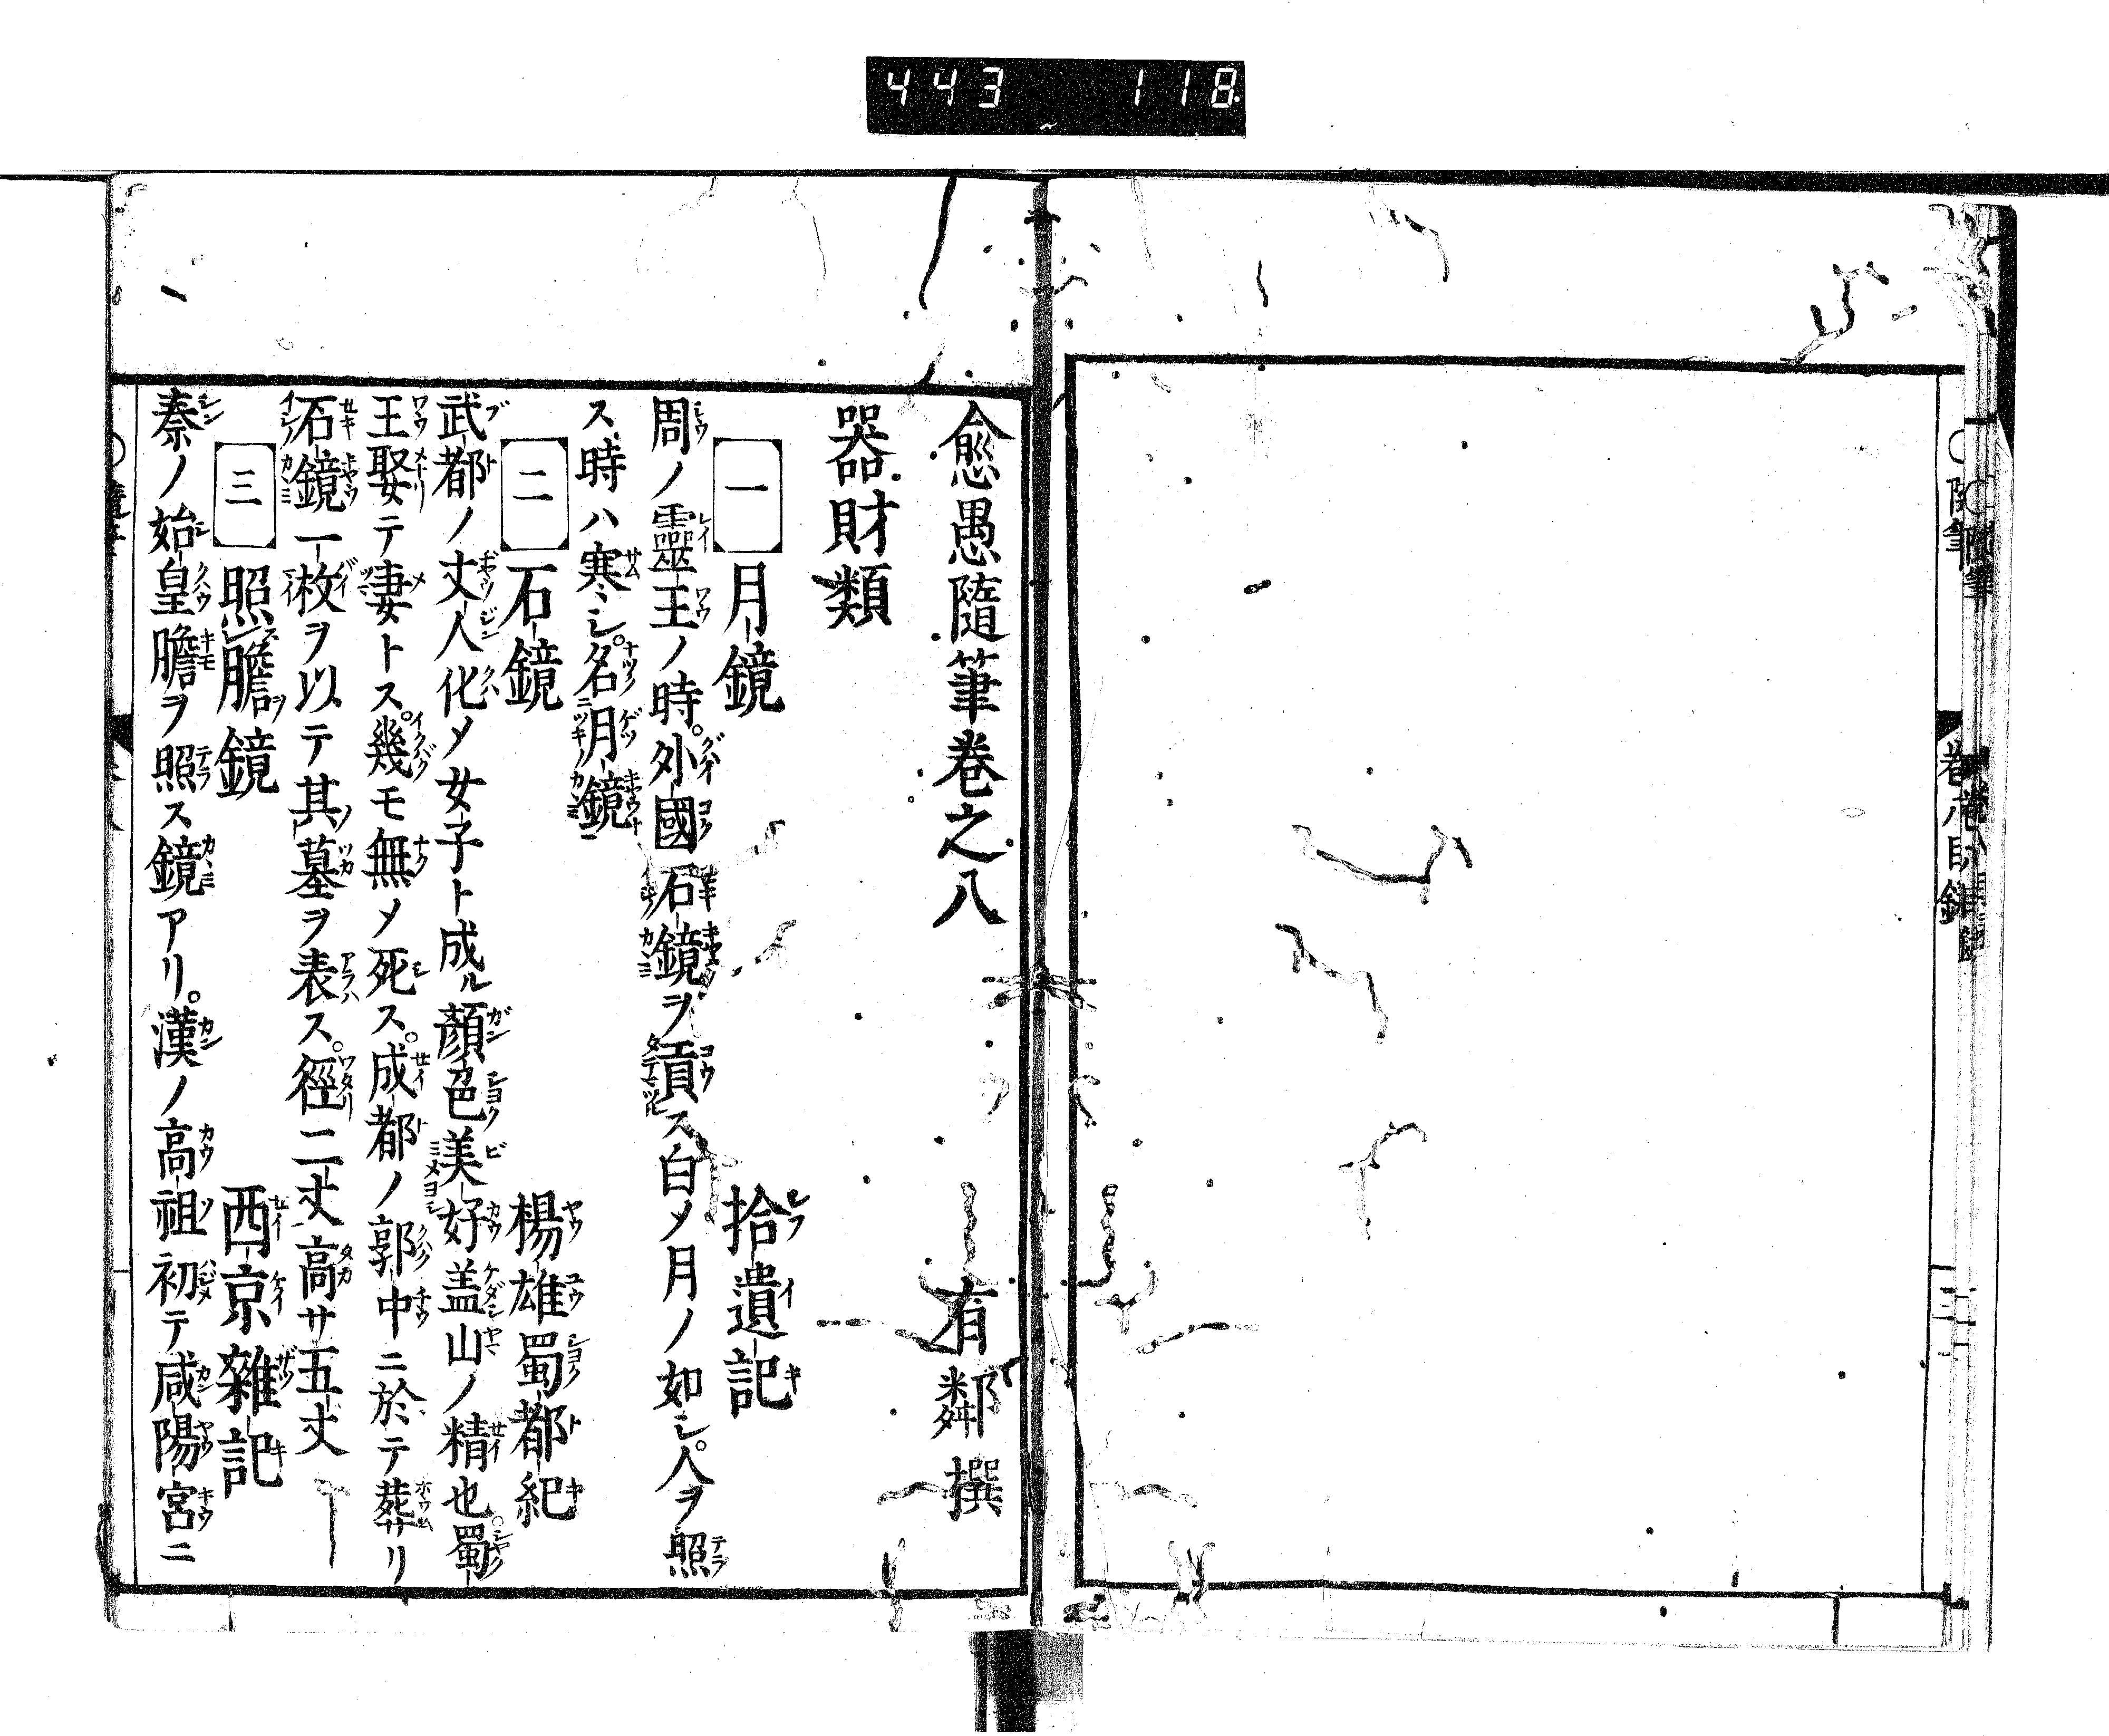 443 118
愈愚隨筆卷之八 有鄰撰
器財類
一 月鏡 拾遺記
周ノ靈王ノ時。外國石鏡ヲ貢ス白メ月ノ如シ。人ヲ照
ス時ハ寒シ。名月鏡
二 石鏡 楊雄蜀都紀
武都ノ丈人化メ女子ト成ル顏色美好盖山ノ精也。蜀
王娶テ妻トス。幾モ無メ死ス。成都ノ郭中ニ於テ葬リ
石鏡一枚ヲ以テ其墓ヲ表ス。徑二丈高サ五丈
三 照膽鏡 西京雜記
秦ノ始皇膽ヲ照ス鏡アリ。漢ノ高祖初テ咸陽宮ニ